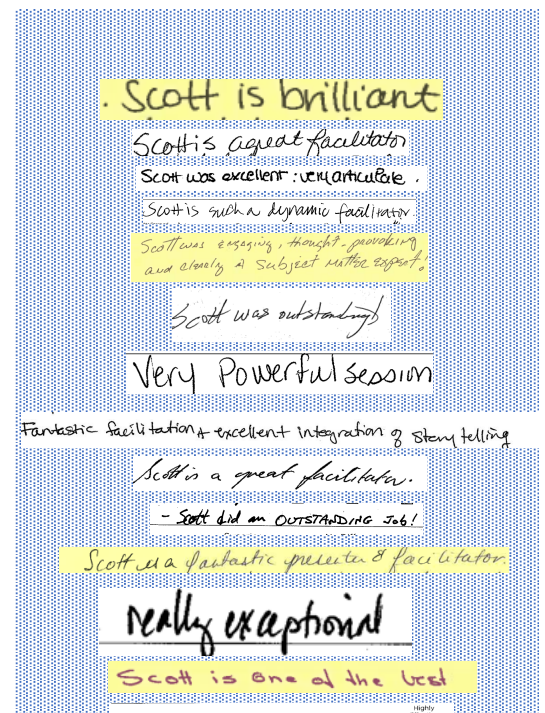 . Scott is brilliant
Scott is a great facilitator
Scott was excellent : very articulate .
Scott is such a dynamic facilitator.
Scott was engaging, thought-provoking
and clearly a subject matter expert!
Scott was outstanding!
Very Powerful session
Fantastic facilitation + excellent integration of story telling
Scott is a great facilitator.
- Scott did an OUTSTANDING JOB!
Scott is a fantastic presenter & facilitator
really exceptional
Scott is one of the best
Highly